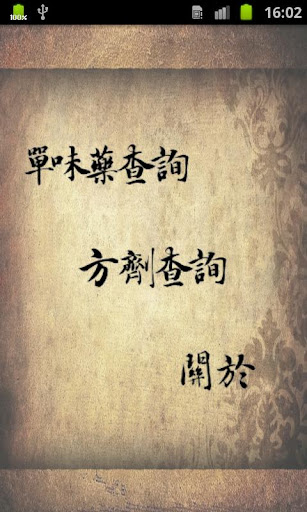 100%
16:02
單味藥查詢
方劑查詢
關於